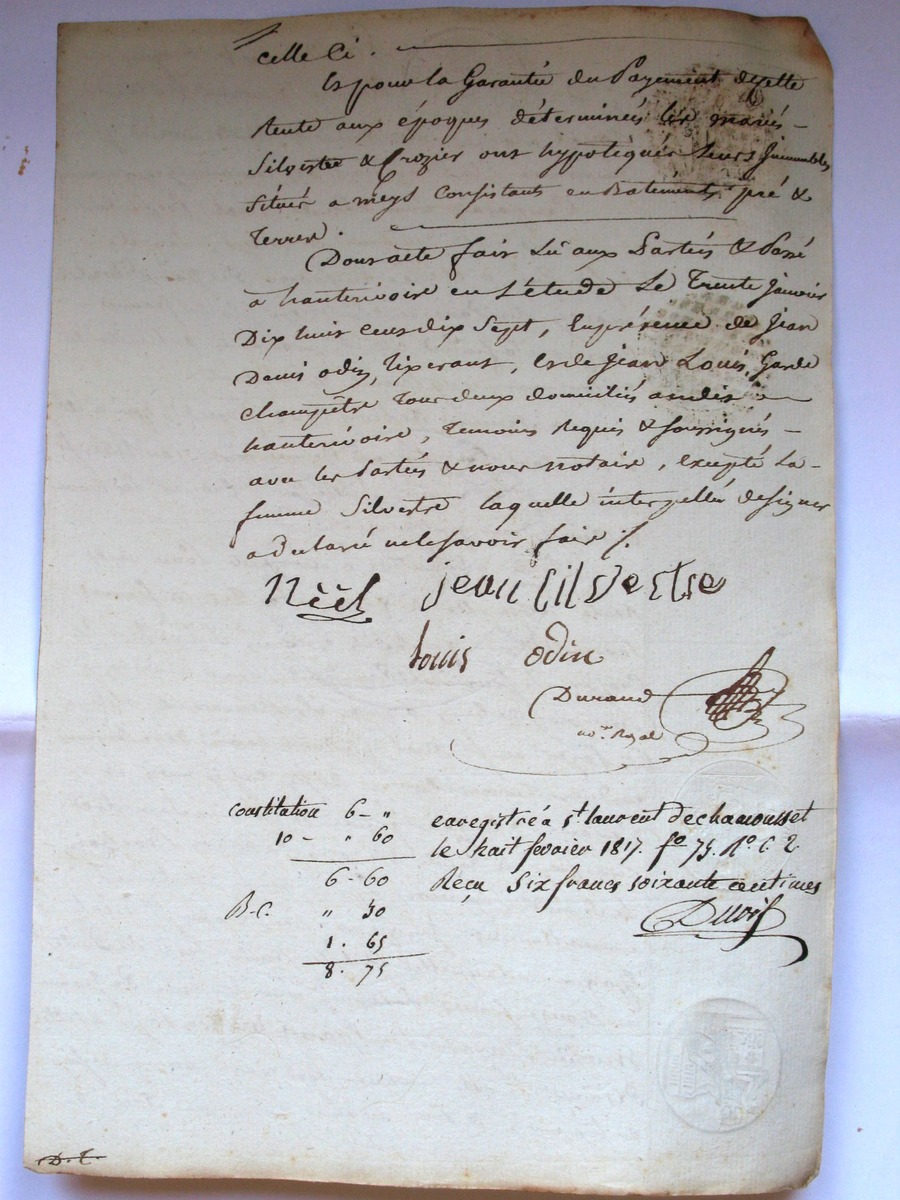 celle Ci.
Et pour la Garantie du Payement de cette
rente aux époques déterminées les mariés
Silvestre & Crozier ont hypotéqués leurs Jmmeubles
situés a meys Consistants en Batiments, pré &
Terres.
Dont acte fait Lû aux Parties & Passé
à hauterivoire en L'étude Le Trente Janvier
Dix huit Cent dix Sept, En présence de Jean
Denis odin, tixerant, et de Jean Louis, Garde
Champêtre Tous deux domiciliés audit
hauterivoire, Temoins Requis & soussignés
avec les Parties & nous notaire, Excepté La
femme Silvestre laquelle interpellée de signer
a declaré ne le savoir faire /.
Nèèl jean silvestre
louis odin
Durand
no.re Royal
Constitution 6 - "
10 - " 60
6 - 60
B.C. " 50
1 . 65
8 . 75
enregistré à st laurent de chamousset
le huit fevrier 1817. fo 75. Ro. C 2
Reçu Six francs soixante centimes
D. T.